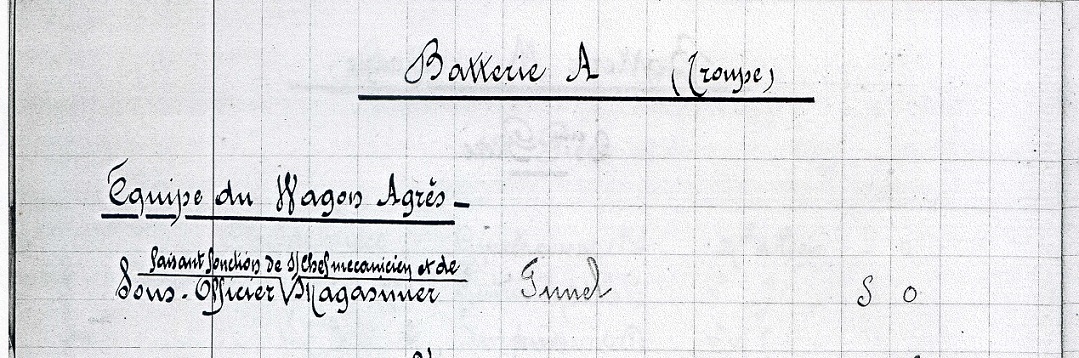 Batterie A (Troupe)
Equipe du Wagon Agrès -
faisant fonction de S/Chef mecanicien et de
Sous-Officier Magasinier S O